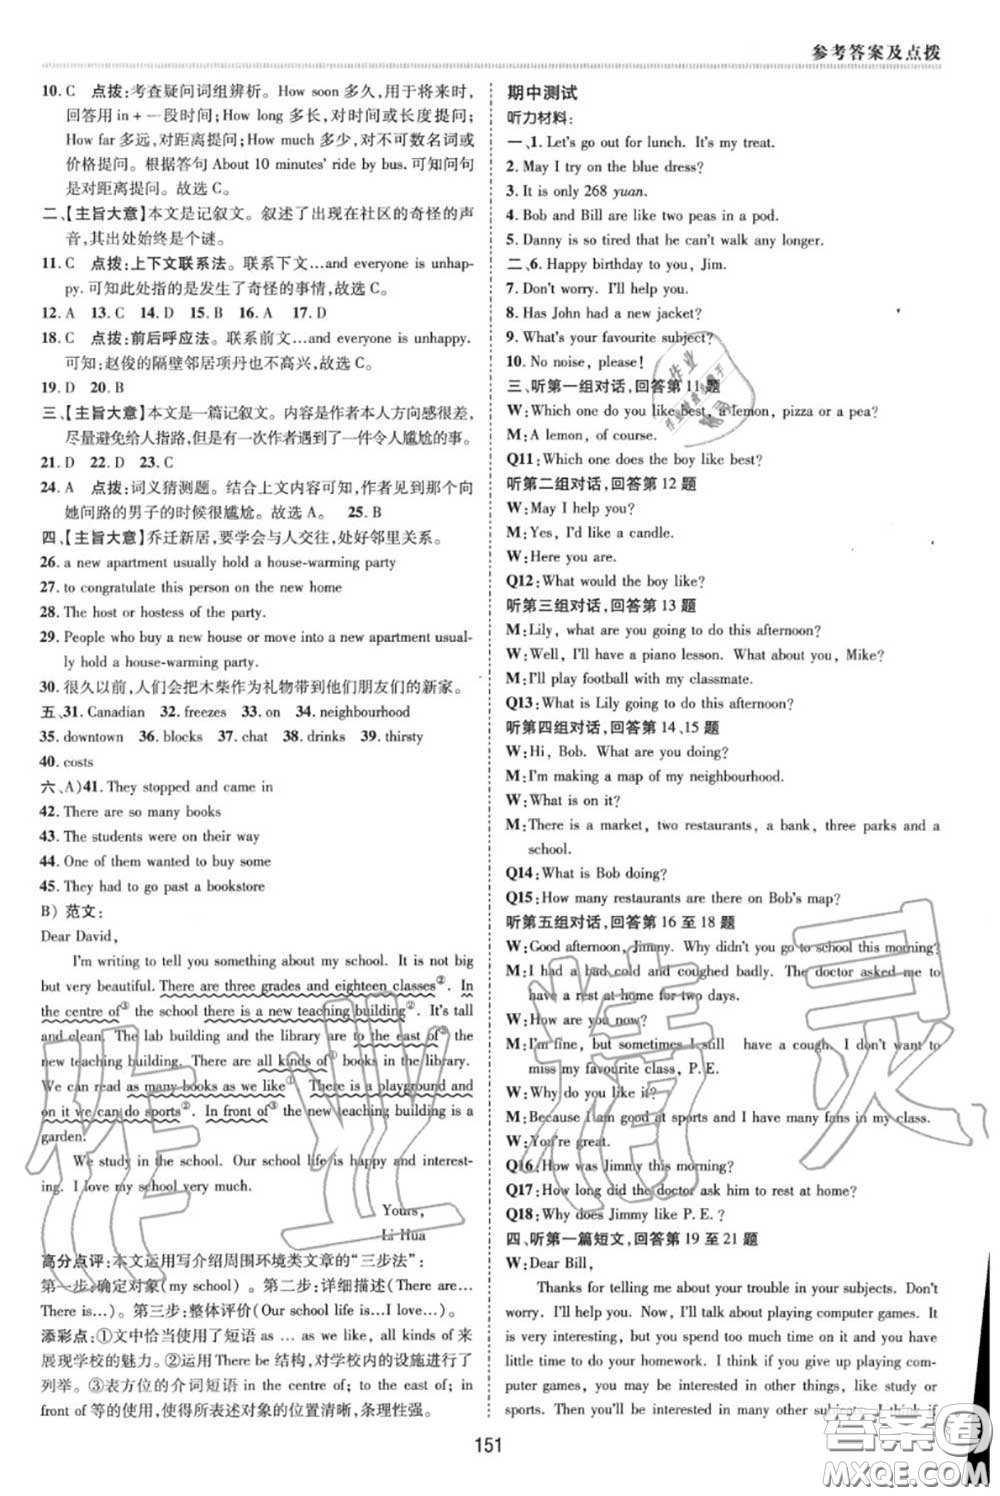 参考答案及点拨
10. C 点拨:考查疑问词组辨析。How soon 多久,用于将来时,
回答用 in + 一段时间;How long 多长,对时间或长度提问;
How far 多远,对距离提问;How much 多少,对不可数名词或
价格提问。根据答句 About 10 minutes' ride by bus. 可知问句
是对距离提问。故选 C。
二、【主旨大意】本文是记叙文。叙述了出现在社区的奇怪的声
音,其出处始终是个谜。
11. C 点拨:上下文联系法。联系下文…and everyone is unhap-
py. 可知此处指的是发生了奇怪的事情,故选 C。
12. A 13. C 14. D 15. B 16. A 17. D
18. C 点拨:前后呼应法。联系前文…and everyone is unhappy.
可知:赵俊的隔壁邻居项丹也不高兴,故选 C。
19. D 20. B
三、【主旨大意】本文是一篇记叙文。内容是作者本人方向感很差,
尽量避免给人指路,但有一次作者遇到了一件令人尴尬的事。
21. D 22. D 23. C
24. A 点拨:词义猜测题。结合上文内容可知,作者在碰到向
她问路的男子的时候很尴尬。故选 A。 25. B
四、【主旨大意】乔迁新居,要学会与人交往,处好邻里关系。
26. a new apartment usually hold a house-warming party
27. to congratulate this person on the new home
28. The host or hostess of the party.
29. People who buy a new house or move into a new apartment usual-
ly hold a house-warming party.
30. 很久以前,人们会把木柴作为礼物带到他们朋友们的新家。
五、31. Canadian 32. freezes 33. on 34. neighbourhood
35. downtown 36. blocks 37. chat 38. drinks 39. thirsty
40. costs
六、A)41. They stopped and came in
42. There are so many books
43. The students were on their way
44. One of them wanted to buy some
45. They had to go past a bookstore
B) 范文:
Dear David,
I'm writing to tell you something about my school. It is not big
but very beautiful. There are three grades and eighteen classes②. In
the centre of③ the school there is a new teaching building②. It's tall
and clean. The lab building and the library are to the east of③ the
new teaching building. There are all kinds of① books in the library.
We can read as many books as we like①. There is a playground and
on it we can do sports②. In front of③ the new teaching building is a
garden.
We study in the school. Our school life is happy and interest-
ing. I love my school very much.
Yours,
Li Hua
高分点评:本文运用写介绍周围环境类文章的“三步法”:
第一步:确定对象(my school)。第二步:详细描述(There are...
There is...)。第三步:整体评价(Our school life is...I love...)。
添彩点:①文中恰当使用了短语 as ... as we like, all kinds of 来
展现学校的魅力。②运用 There be 结构,对学校内的设施进行了
列举。③表方位的介词短语 in the centre of; to the east of; in
front of 等的使用,使得所表述对象的位置清晰,条理性强。
期中测试
听力材料:
一、1. Let's go out for lunch. It's my treat.
2. May I try on the blue dress?
3. It is only 268 yuan.
4. Bob and Bill are like two peas in a pod.
5. Danny is so tired that he can't walk any longer.
二、6. Happy birthday to you, Jim.
7. Don't worry. I'll help you.
8. Has John had a new jacket?
9. What's your favourite subject?
10. No noise, please!
三、听第一组对话,回答第 11 题
W:Which one do you like best, a lemon, pizza or a pea?
M:A lemon, of course.
Q11:Which one does the boy like best?
听第二组对话,回答第 12 题
W:May I help you?
M:Yes, I'd like a candle.
W:Here you are.
Q12:What would the boy like?
听第三组对话,回答第 13 题
M:Lily, what are you going to do this afternoon?
W:Well, I'll have a piano lesson. What about you, Mike?
M:I'll play football with my classmate.
Q13:What is Lily going to do this afternoon?
听第四组对话,回答第 14、15 题
W:Hi, Bob. What are you doing?
M:I'm making a map of my neighbourhood.
W:What is on it?
M:There is a market, two restaurants, a bank, three parks and a
school.
Q14:What is Bob doing?
Q15:How many restaurants are there on Bob's map?
听第五组对话,回答第 16 至 18 题
W:Good afternoon, Jimmy. Why didn't you go to school this morning?
M:I had a bad cold and coughed badly. The doctor asked me to
have a rest at home for two days.
W:How are you now?
M:I'm fine, but sometimes I still have a cough. I don't want to
miss my favourite class, P.E.
W:Why do you like it?
M:Because I am good at sports and I have many fans in my class.
W:You're great.
Q16:What was Jimmy this morning?
Q17:How long did the doctor ask him to rest at home?
Q18:Why does Jimmy like P. E.?
四、听第一篇短文,回答第 19 至 21 题
W:Dear Bill,
Thanks for telling me about your trouble in your subjects. Don't
worry. I'll help you. Now, I'll talk about playing computer games.
It is interesting, but you spend too much time on it and you have
little time to do your homework. I think if you give up playing com-
puter games, you may be interested in other things, like study or
sports. Then you'll be interested in many other subjects. I think if
151
作业精灵
答案圈
MXQE.COM